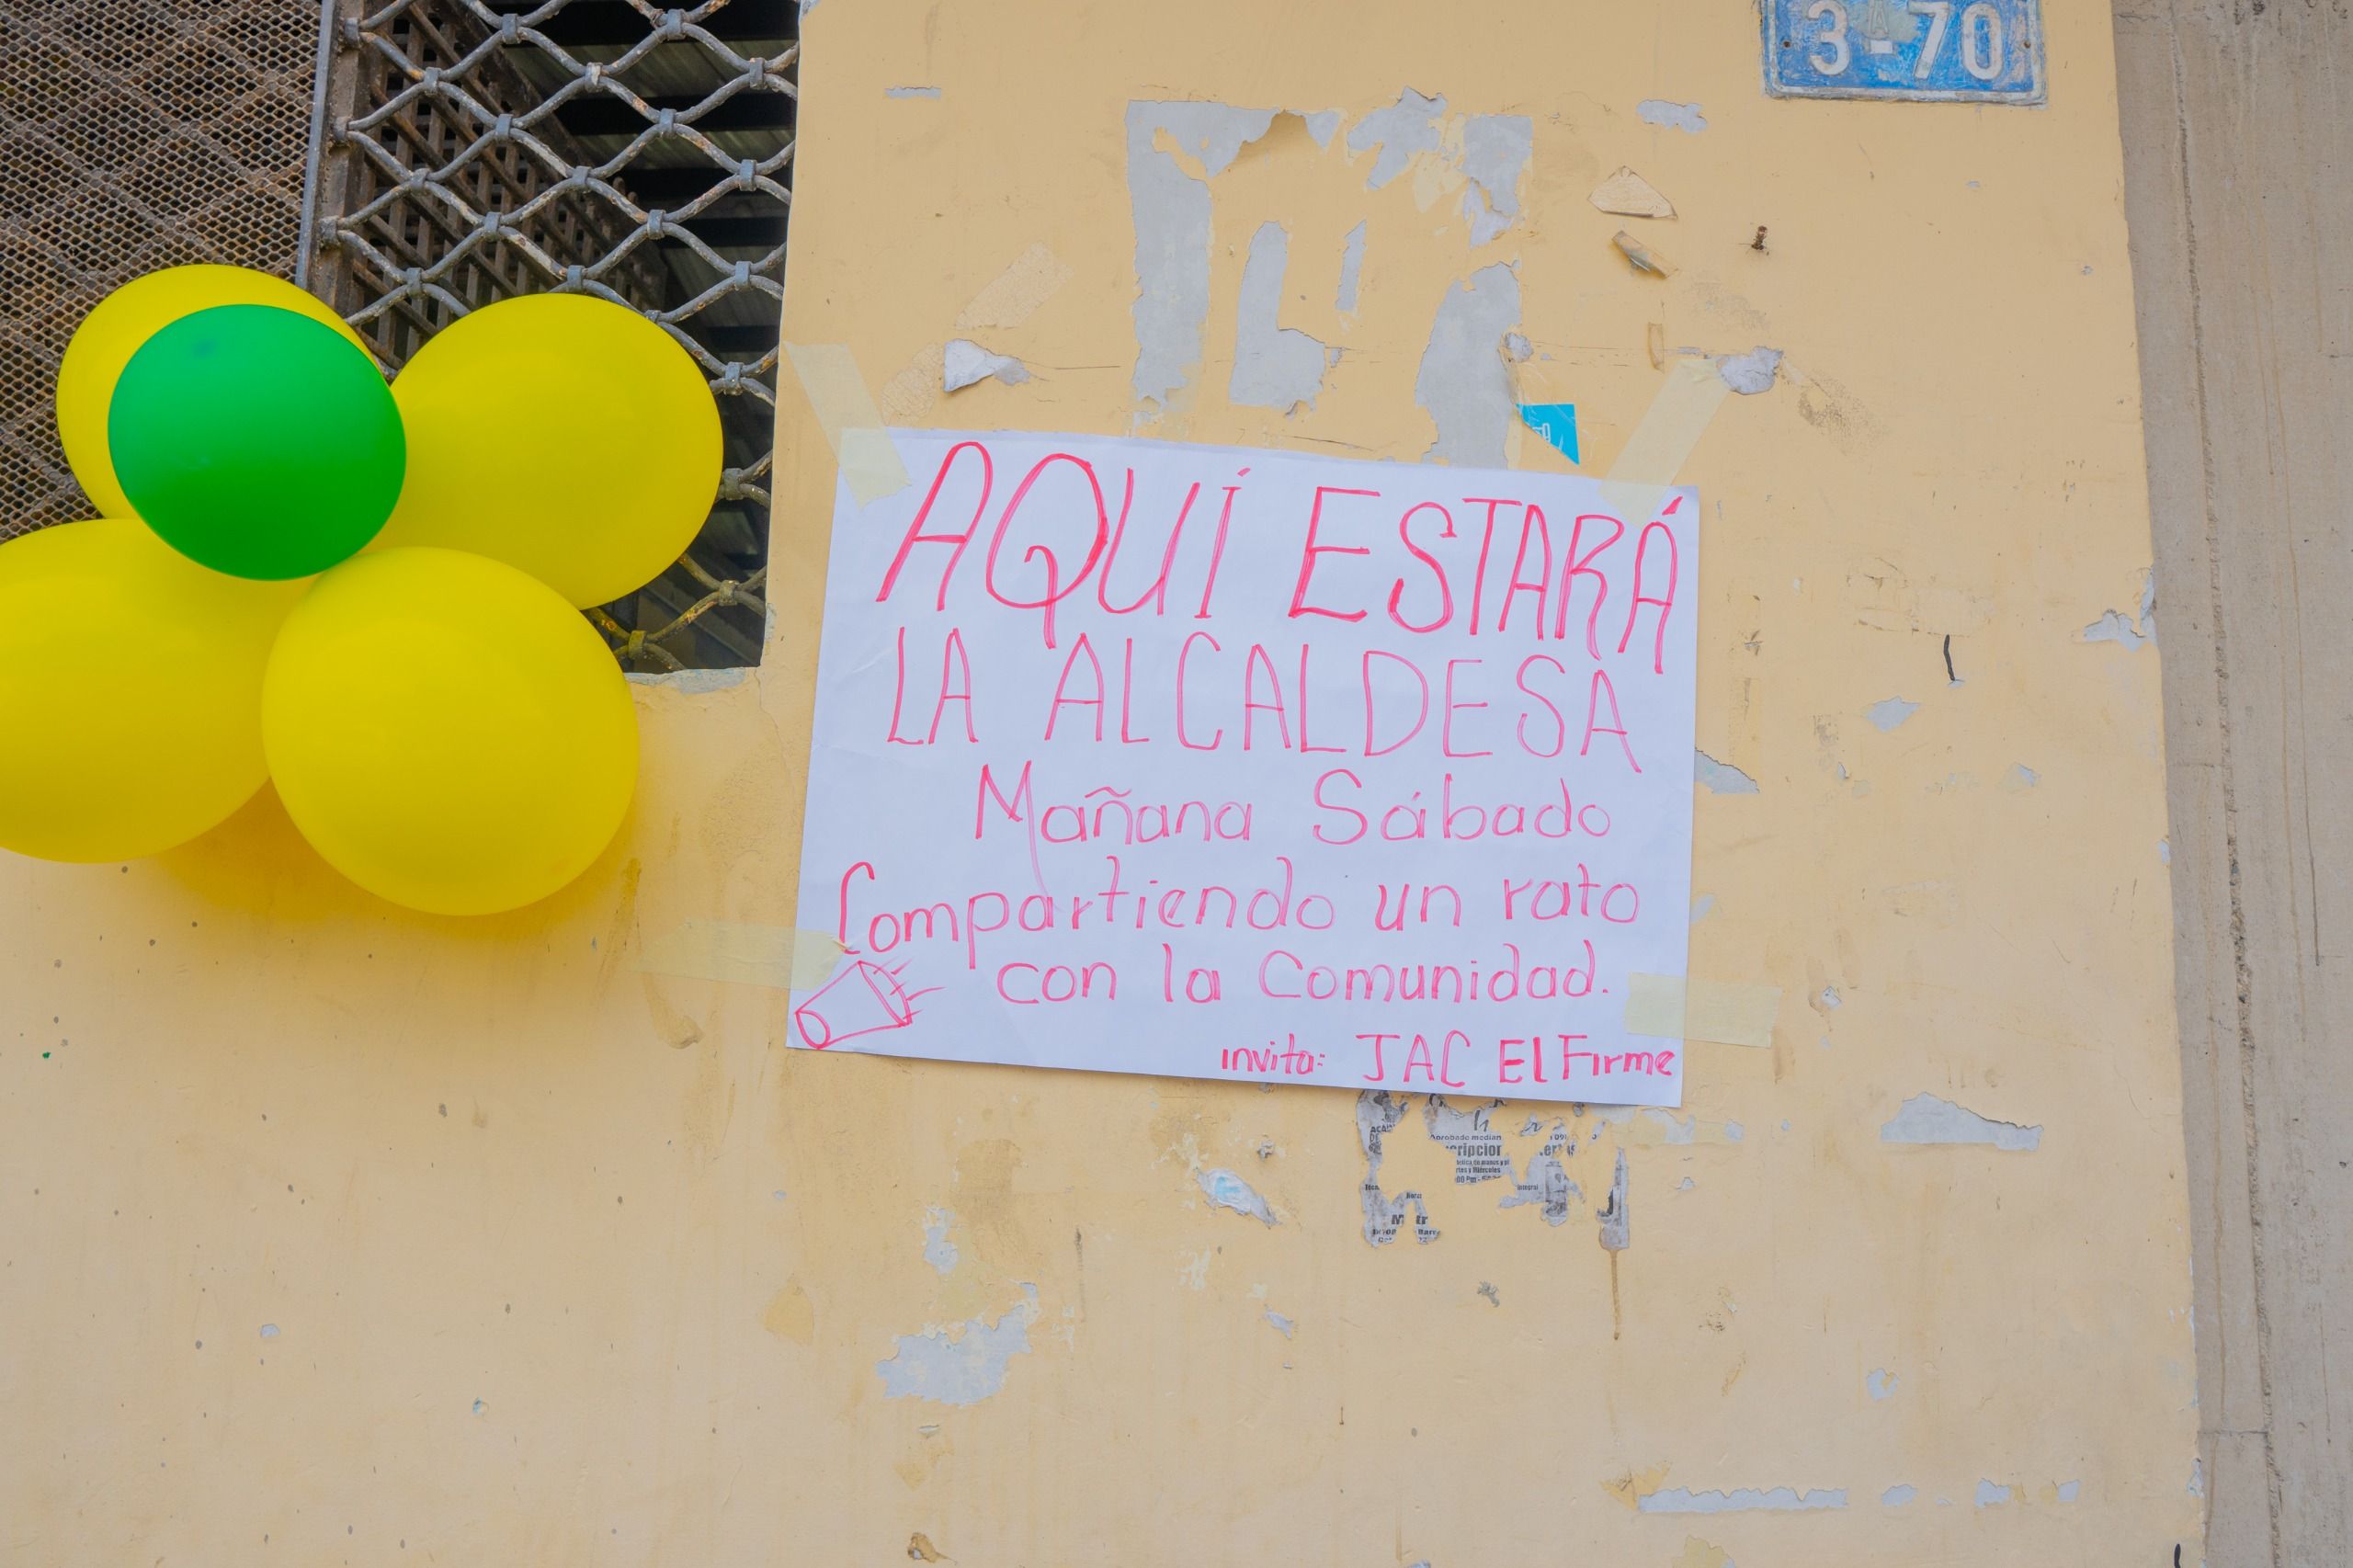 3-70
AQUÍ ESTARÁ
LA ALCALDESA
Mañana Sábado
Compartiendo un rato
con la Comunidad.
invita: JAC El Firme